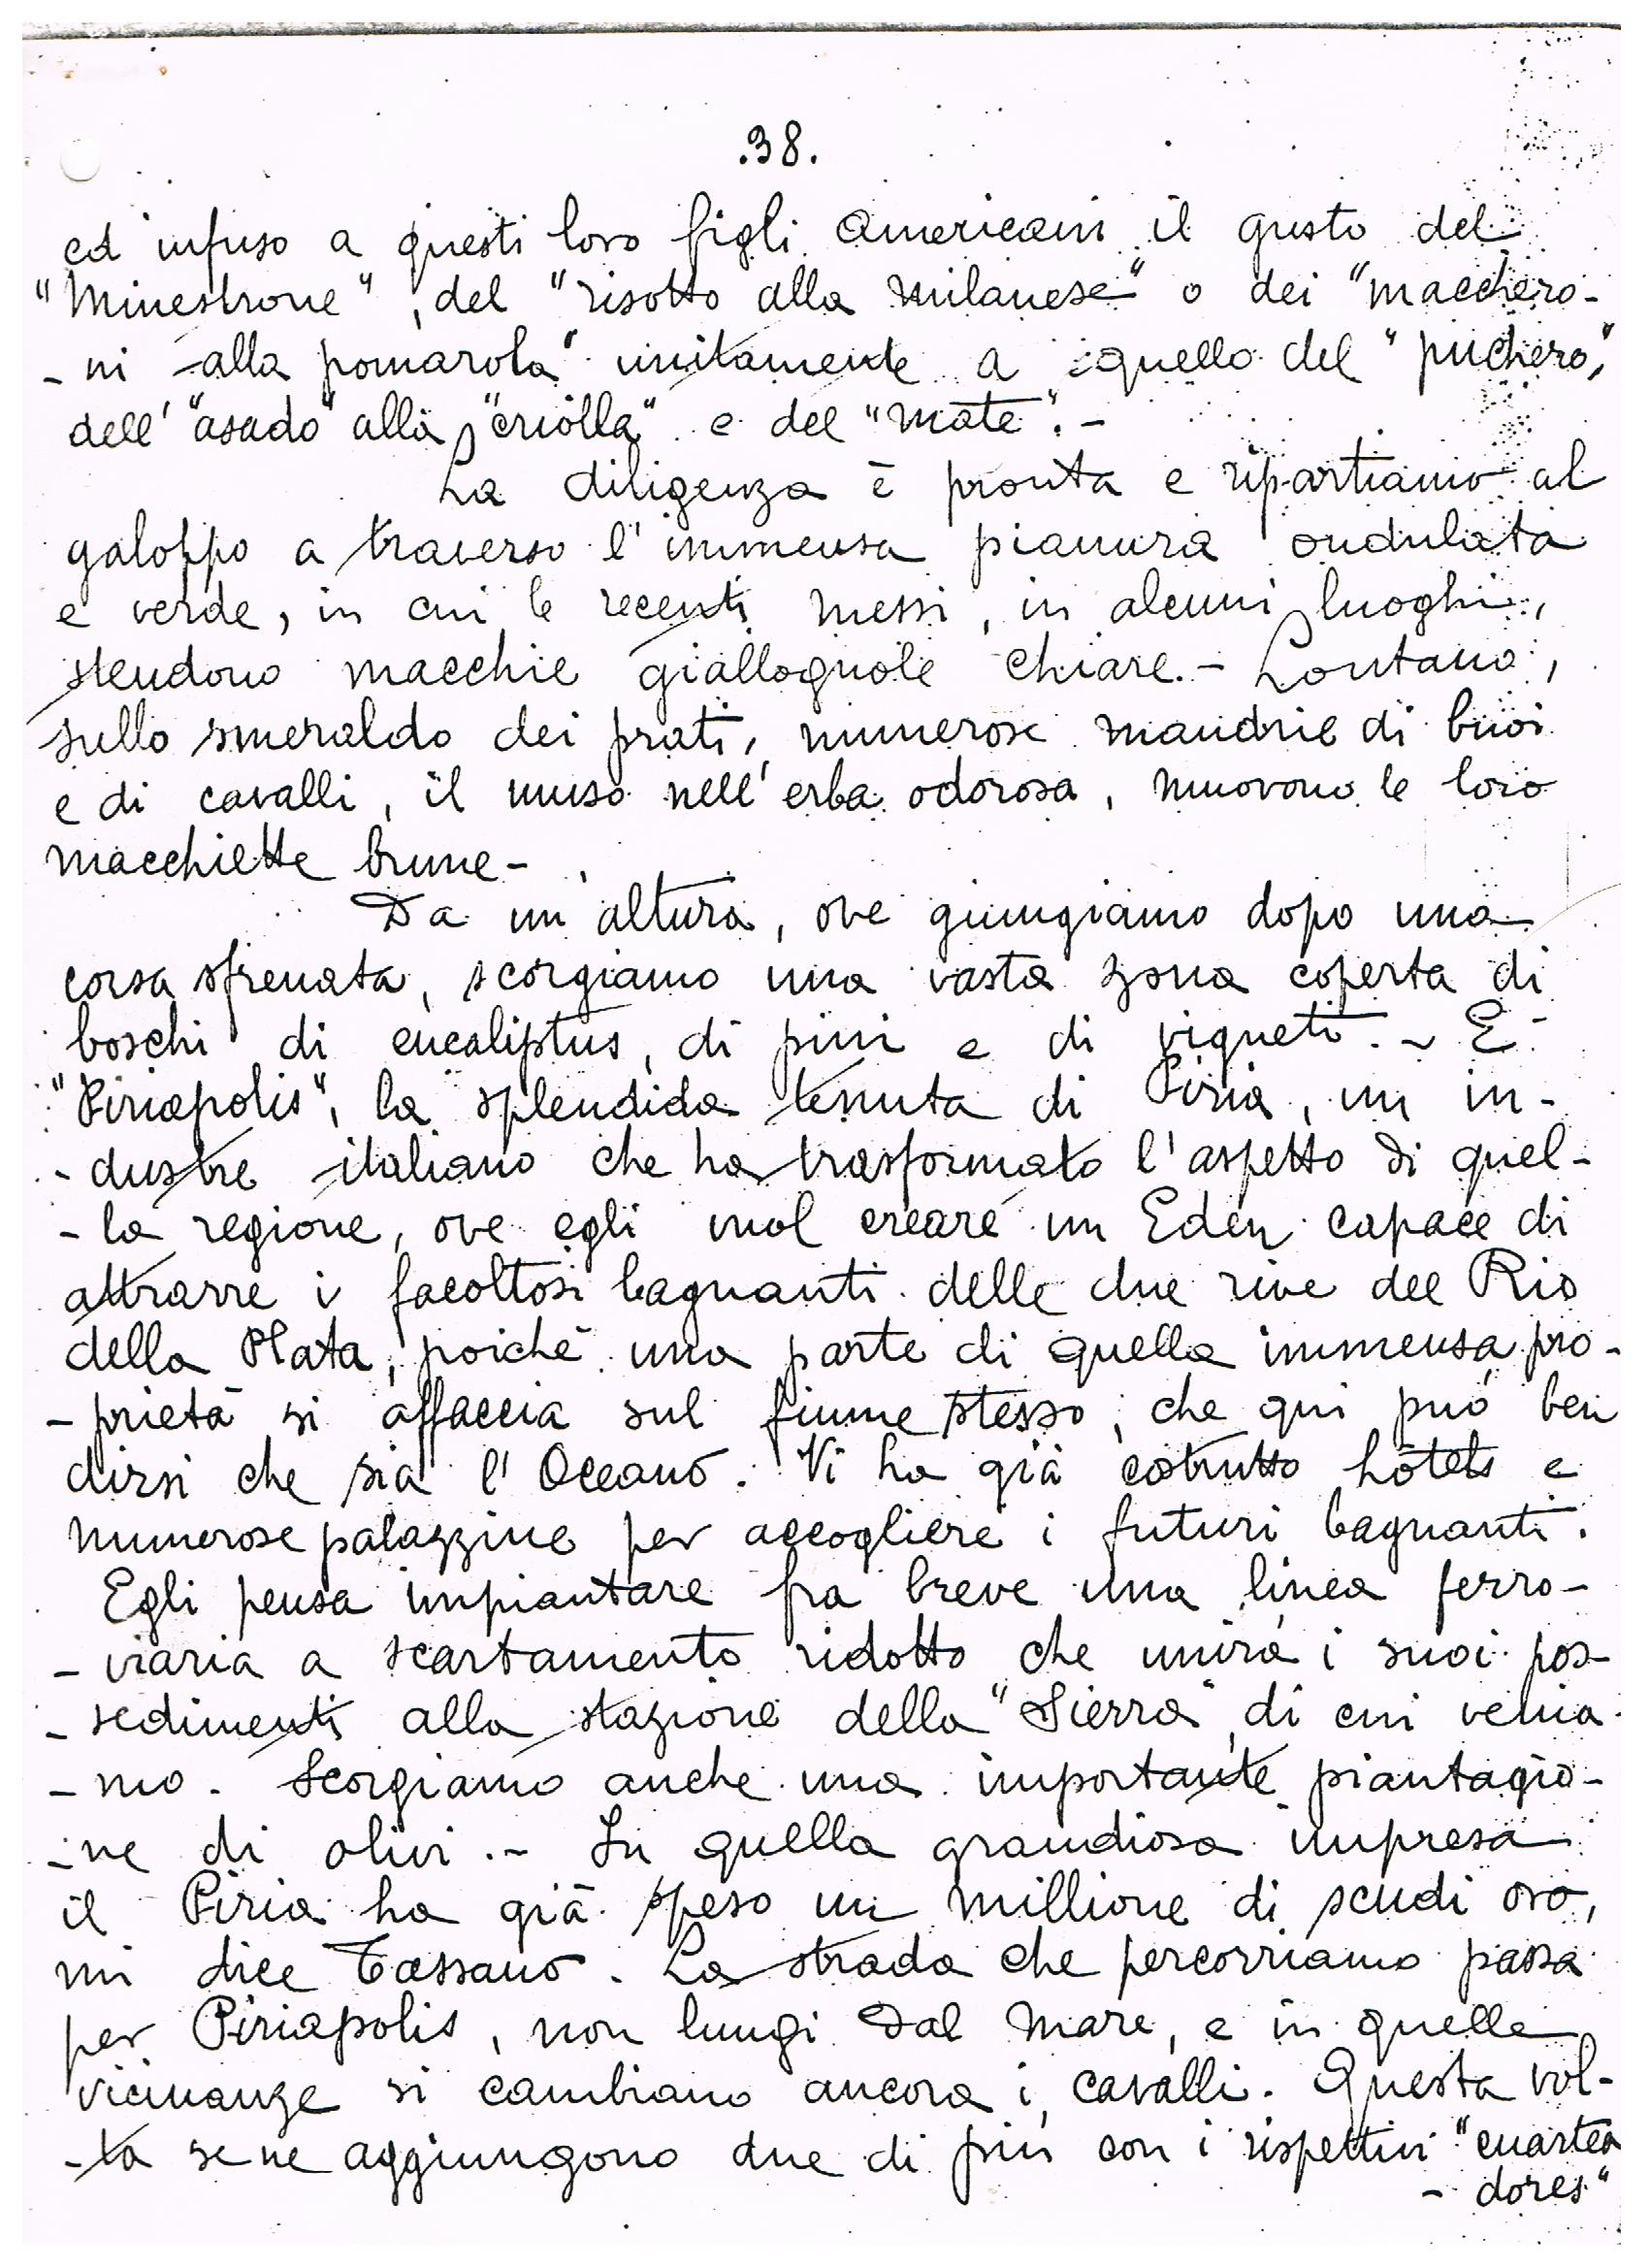 .38.
ed infuso a questi loro figli Americani il gusto del
"Minestrone", del "risotto alla milanese" o dei "macchero-
- ni alla pomarola" unitamente a quello del "puchero",
dell' "asado" alla "criolla" e del "mate". -
La diligenza è pronta e ripartiamo al
galoppo a traverso l'immensa pianura ondulata
e verde, in cui le recenti messi, in alcuni luoghi,
stendono macchie giallognole chiare. - Lontano,
sullo smeraldo dei prati, numerose mandrie di buoi
e di cavalli, il muso nell'erba odorosa, muovono le loro
macchiette brune -
Da un'altura, ove giungiamo dopo una
corsa sfrenata, scorgiamo una vasta zona coperta di
boschi di eucaliptus, di pini e di vigneti. - E'
"Piriapolis", la splendida tenuta di Piria, un in-
- dustre italiano che ha trasformato l'aspetto di quel-
- la regione, ove egli vuol creare un Eden capace di
attrarre i facoltosi bagnanti delle due rive del Rio
della Plata, poichè una parte di quella immensa pro-
- prietà si affaccia sul fiume stesso, che qui può ben
dirsi che sia l'Oceano. Vi ha già costrutto hôtels e
numerose palazzine per accogliere i futuri bagnanti.
Egli pensa impiantare fra breve una linea ferro-
- viaria a scartamento ridotto che unirà i suoi pos-
- sedimenti alla stazione della "Sierra", di cui venia-
- mo. Scorgiamo anche una importante piantagio-
- ne di olivi. - In quella grandiosa impresa
il Piria ha già speso un millione di scudi oro,
mi dice Tassano. La strada che percorriamo passa
per Piriapolis, non lungi dal mare, e in quelle
vicinanze si cambiano ancora i cavalli. Questa vol-
- ta se ne aggiungono due di più con i rispettivi "cuartea
- dores"